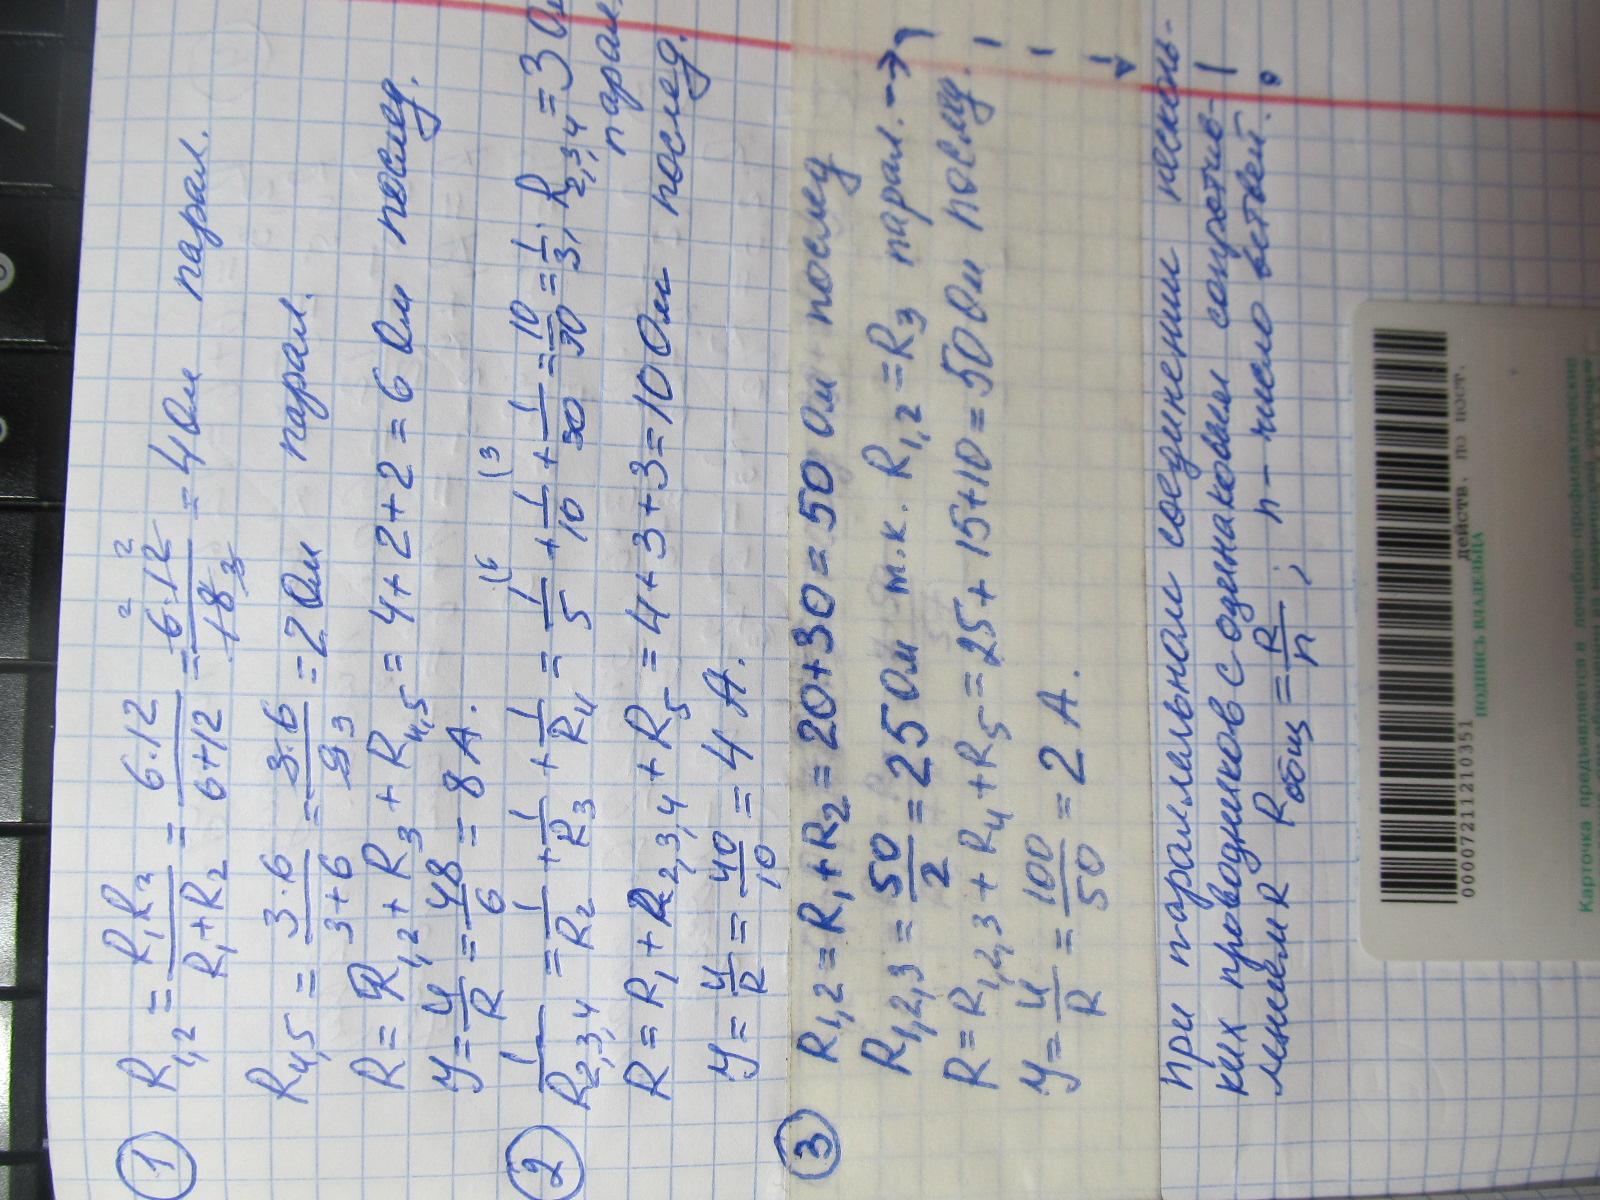 1 R1,2 = R1R2/R1+R2 = 6·12/6+12 = 6·12/18 = 4 Ом парал.
R4,5 = 3·6/3+6 = 3·6/9 = 2 Ом парал.
R = R1,2 + R3 + R4,5 = 4+2+2 = 6 Ом послед.
У = U/R = 48/6 = 8 А.
2 1/R2,3,4 = 1/R2 + 1/R3 + 1/R4 = 1/5 + 1/10 + 1/30 = 10/30 = 1/3, R2,3,4 = 3 Ом
парал.
R = R1 + R2,3,4 + R5 = 4+3+3 = 10 Ом послед.
У = U/R = 40/10 = 4 А.
3 R1,2 = R1 + R2 = 20+30 = 50 Ом послед
R1,2,3 = 50/2 = 25 Ом т.к. R1,2 = R3 парал.
R = R1,2,3 + R4 + R5 = 25+15+10 = 50 Ом послед.
У = U/R = 100/50 = 2 А.
При параллельном соединении несколь-
ких проводников с одинаковым сопротив-
лением R Rобщ = R/n ; n – число ветвей. !
0000721121210351 действ. по пост.
ПОДПИСЬ ВЛАДЕЛЬЦА
Карточка предъявляется в лечебно-профилактические